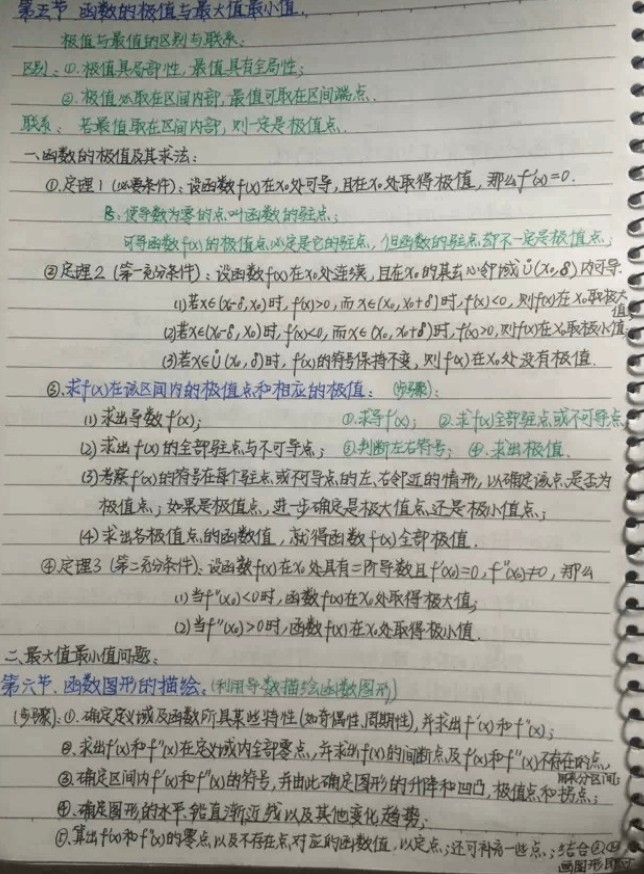 第五节 函数的极值与最大值最小值.
极值与最值的区别与联系:
区别: ①.极值具局部性,最值具有全局性;
②.极值必取在区间内部,最值可取在区间端点.
联系: 若最值取在区间内部,则一定是极值点.
一、函数的极值及其求法:
①.定理1(必要条件):设函数f(x)在x₀处可导,且在x₀处取得极值,那么f'(x₀)=0.
使导数为零的点叫函数的驻点;
可导函数f(x)的极值点必定是它的驻点,但函数的驻点却不一定是极值点;
②定理2(第一充分条件):设函数f(x)在x₀处连续,且在x₀的某去心邻域Ů(x₀,δ)内可导.
(1)若x∈(x₀-δ,x₀)时,f'(x)>0,而x∈(x₀,x₀+δ)时,f'(x)<0,则f(x)在x₀取极大值;
(2)若x∈(x₀-δ,x₀)时,f'(x)<0,而x∈(x₀,x₀+δ)时,f'(x)>0,则f(x)在x₀取极小值
(3)若x∈Ů(x₀,δ)时,f'(x)的符号保持不变,则f(x)在x₀处没有极值.
③.求f(x)在该区间内的极值点和相应的极值: (步骤):
(1)求出导数f'(x); ①.求导f'(x); ②.求f(x)全部驻点或不可导点
(2)求出f(x)的全部驻点与不可导点; ③判断左右符号; ④.求出极值.
(3)考察f'(x)的符号在每个驻点或不可导点的左、右邻近的情形,以确定该点是否为
极值点;如果是极值点,进一步确定是极大值点还是极小值点;
(4)求出各极值点的函数值,就得函数f(x)全部极值.
④定理3(第二充分条件):设函数f(x)在x₀处具有二阶导数且f'(x₀)=0,f"(x₀)≠0,那么
(1)当f"(x₀)<0时,函数f(x)在x₀处取得极大值;
(2)当f"(x₀)>0时,函数f(x)在x₀处取得极小值.
二、最大值最小值问题:
第六节.函数图形的描绘:(利用导数描绘函数图形)
(步骤):①.确定定义域及函数所具某些特性(如奇偶性,周期性),并求出f'(x)和f"(x);
②.求出f'(x)和f"(x)在定义域内全部零点,并求出f(x)的间断点及f'(x)和f"(x)不存在的点,
分区间;
③确定区间内f'(x)和f"(x)的符号,并由此确定图形的升降和凹凸,极值点和拐点;
④.确定图形的水平、铅直渐近线以及其他变化趋势;
⑤.算出f'(x)和f"(x)的零点以及不存在点对应的函数值,以定点;还可补充一些点;结合③④
画图形